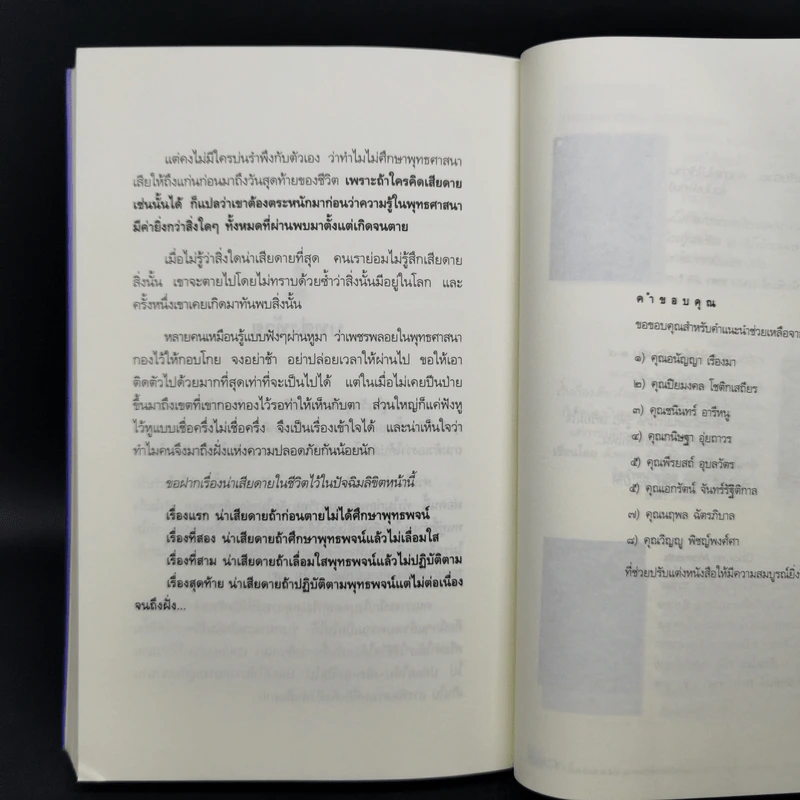 แต่คงไม่มีใครบ่นรำพึงกับตัวเอง ว่าทำไมไม่ศึกษาพุทธศาสนา
เสียให้ถึงแก่นก่อนมาถึงวันสุดท้ายของชีวิต เพราะถ้าใครคิดเสียดาย
เช่นนั้นได้ ก็แปลว่าเขาต้องตระหนักมาก่อนว่าความรู้ในพุทธศาสนา
มีค่ายิ่งกว่าสิ่งใดๆ ทั้งหมดที่ผ่านพบมาตั้งแต่เกิดจนตาย
เมื่อไม่รู้ว่าสิ่งใดน่าเสียดายที่สุด คนเราย่อมไม่รู้สึกเสียดาย
สิ่งนั้น เขาจะตายไปโดยไม่ทราบด้วยซ้ำว่าสิ่งนั้นมีอยู่ในโลก และ
ครั้งหนึ่งเขาเคยเกิดมาทันพบสิ่งนั้น
หลายคนเหมือนรู้แบบฟังๆผ่านหูมา ว่าเพชรพลอยในพุทธศาสนา
กองไว้ให้กอบโกย จงอย่าช้า อย่าปล่อยเวลาให้ผ่านไป ขอให้เอา
ติดตัวไปด้วยมากที่สุดเท่าที่จะเป็นไปได้ แต่ในเมื่อไม่เคยปีนป่าย
ขึ้นมาถึงเขตที่เขากองทองไว้รอทำให้เห็นกับตา ส่วนใหญ่ก็แค่ฟังหู
ไว้หูแบบเชื่อครึ่งไม่เชื่อครึ่ง จึงเป็นเรื่องเข้าใจได้ และน่าเห็นใจว่า
ทำไมคนจึงมาถึงฝั่งแห่งความปลอดภัยกันน้อยนัก
ขอฝากเรื่องน่าเสียดายในชีวิตไว้ในปัจฉิมลิขิตหน้านี้
เรื่องแรก น่าเสียดายถ้าก่อนตายไม่ได้ศึกษาพุทธพจน์
เรื่องที่สอง น่าเสียดายถ้าศึกษาพุทธพจน์แล้วไม่เลื่อมใส
เรื่องที่สาม น่าเสียดายถ้าเลื่อมใสพุทธพจน์แล้วไม่ปฏิบัติตาม
เรื่องสุดท้าย น่าเสียดายถ้าปฏิบัติตามพุทธพจน์แต่ไม่ต่อเนื่อง
จนถึงฝั่ง...
คำขอบคุณ
ขอขอบคุณสำหรับคำแนะนำช่วยเหลือจาก
๑) คุณอนัญญา เรืองมา
๒) คุณปิยมงคล โชติกเสถียร
๓) คุณชนินทร์ อารีหนู
๔) คุณกนิษฐา อุ่ยถาวร
๕) คุณพีรยสถ์ อุบลวัตร
๕) คุณเอกรัตน์ จันทร์รัฐิติกาล
๗) คุณนฤพล ฉัตรภิบาล
๘) คุณวิญญู พิชญ์พงศ์ศา
ที่ช่วยปรับแต่งหนังสือให้มีความสมบูรณ์ยิ่ง